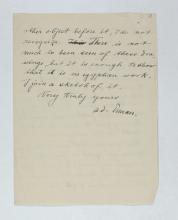 this object before it, I do not
recognize. There is not
much to been seen of these dra-
wings, but it is enough to show
that it is egyptian work.
I join a sketch of it.
Very truly yours
ad. Erman.